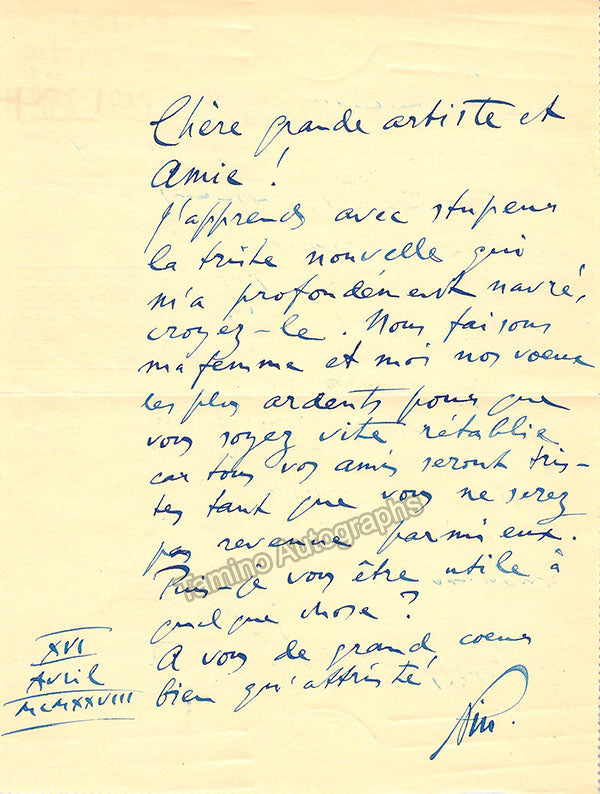 Chère grande artiste et
Amie !
J'apprends avec stupeur
la triste nouvelle qui
m'a profondément navré,
croyez-le. Nous faisons
ma femme et moi nos voeux
les plus ardents pour que
vous soyez vite rétablie
car tous vos amis seront tris-
tes tant que vous ne serez
pas revenue parmi eux.
Puis-je vous être utile à
quelque chose ?
A vous de grand coeur
bien qu'attristé
Nin.
XVI
Avril
MCMXXVIII
Tamino Autographs